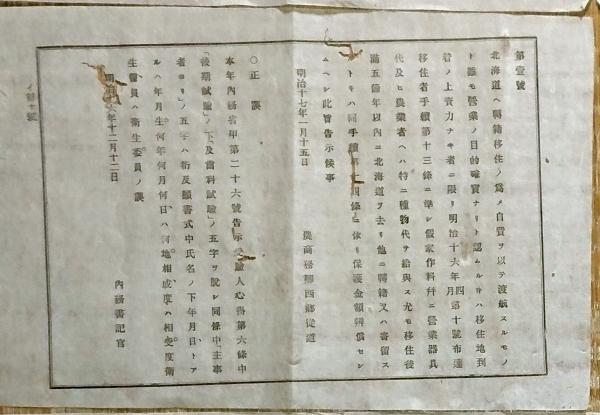 第壹號
北海道ヘ轉籍移住ノ爲メ自費ヲ以テ渡航スルモノ
ト雖モ營業ノ目的確實ナリト認ムルキハ移住地到
着ノ上資力ナキ者ニ限リ明治十六年四月第十號布達
移住者手續第十三條ニ準シ假家作料幷ニ營業器具
代及ヒ農業者ヘハ特ニ種物代ヲ給與ス尤モ移住後
滿五箇年以內ニ北海道ヲ去リ他ニ轉籍又ハ寄留ス
トキハ同手續第十四條ニ依リ保護金額辨償セシ
ムヘシ此旨告示候事
明治十七年一月十五日
農商務卿西鄕從道
○正誤
本年內務省甲第二十六號告示受驗人心得第六條中
「後期試驗」ノ下及齒科試驗」ノ五字ヲ脫シ同條中「主事
者ヨリ」ノ五字ハ衍及願書式中氏名ノ下年月日、トア
ルハ年月生何年何月何日、ハ何地。相成度ハ相受度衞
生醫員ハ衞生委員ノ誤
六年十二月十二日
內務書記官